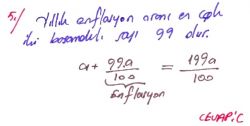 5-/ Yıllık enflasyon oranı en çok
iki basamaklı sayı 99 olur.
a + 99a/100 = 199a/100
Enflasyon
CEVAP: C